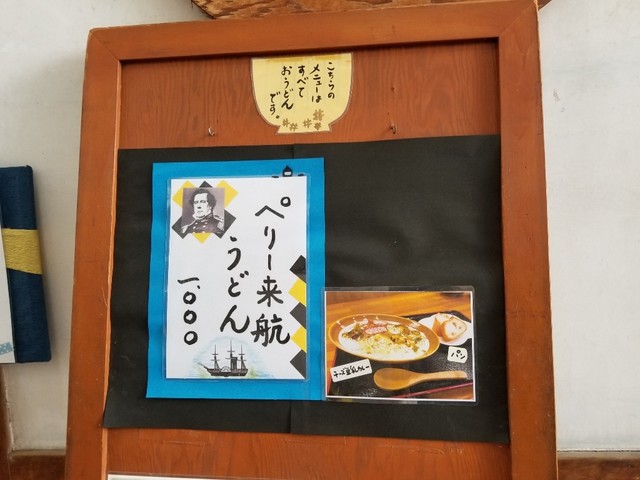 こちらの
メニューは
すべて
おうどん
です。
ペリー来航
うどん
一、〇〇〇
チーズ豆乳カレー
パン